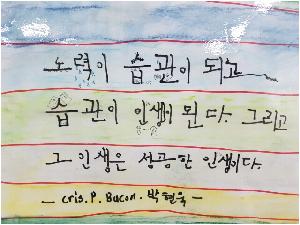 노력이 습관이 되고
습관이 인생이 된다. 그리고
그 인생은 성공한 인생이다.
- Cris. P. Bacon. 박현욱 -